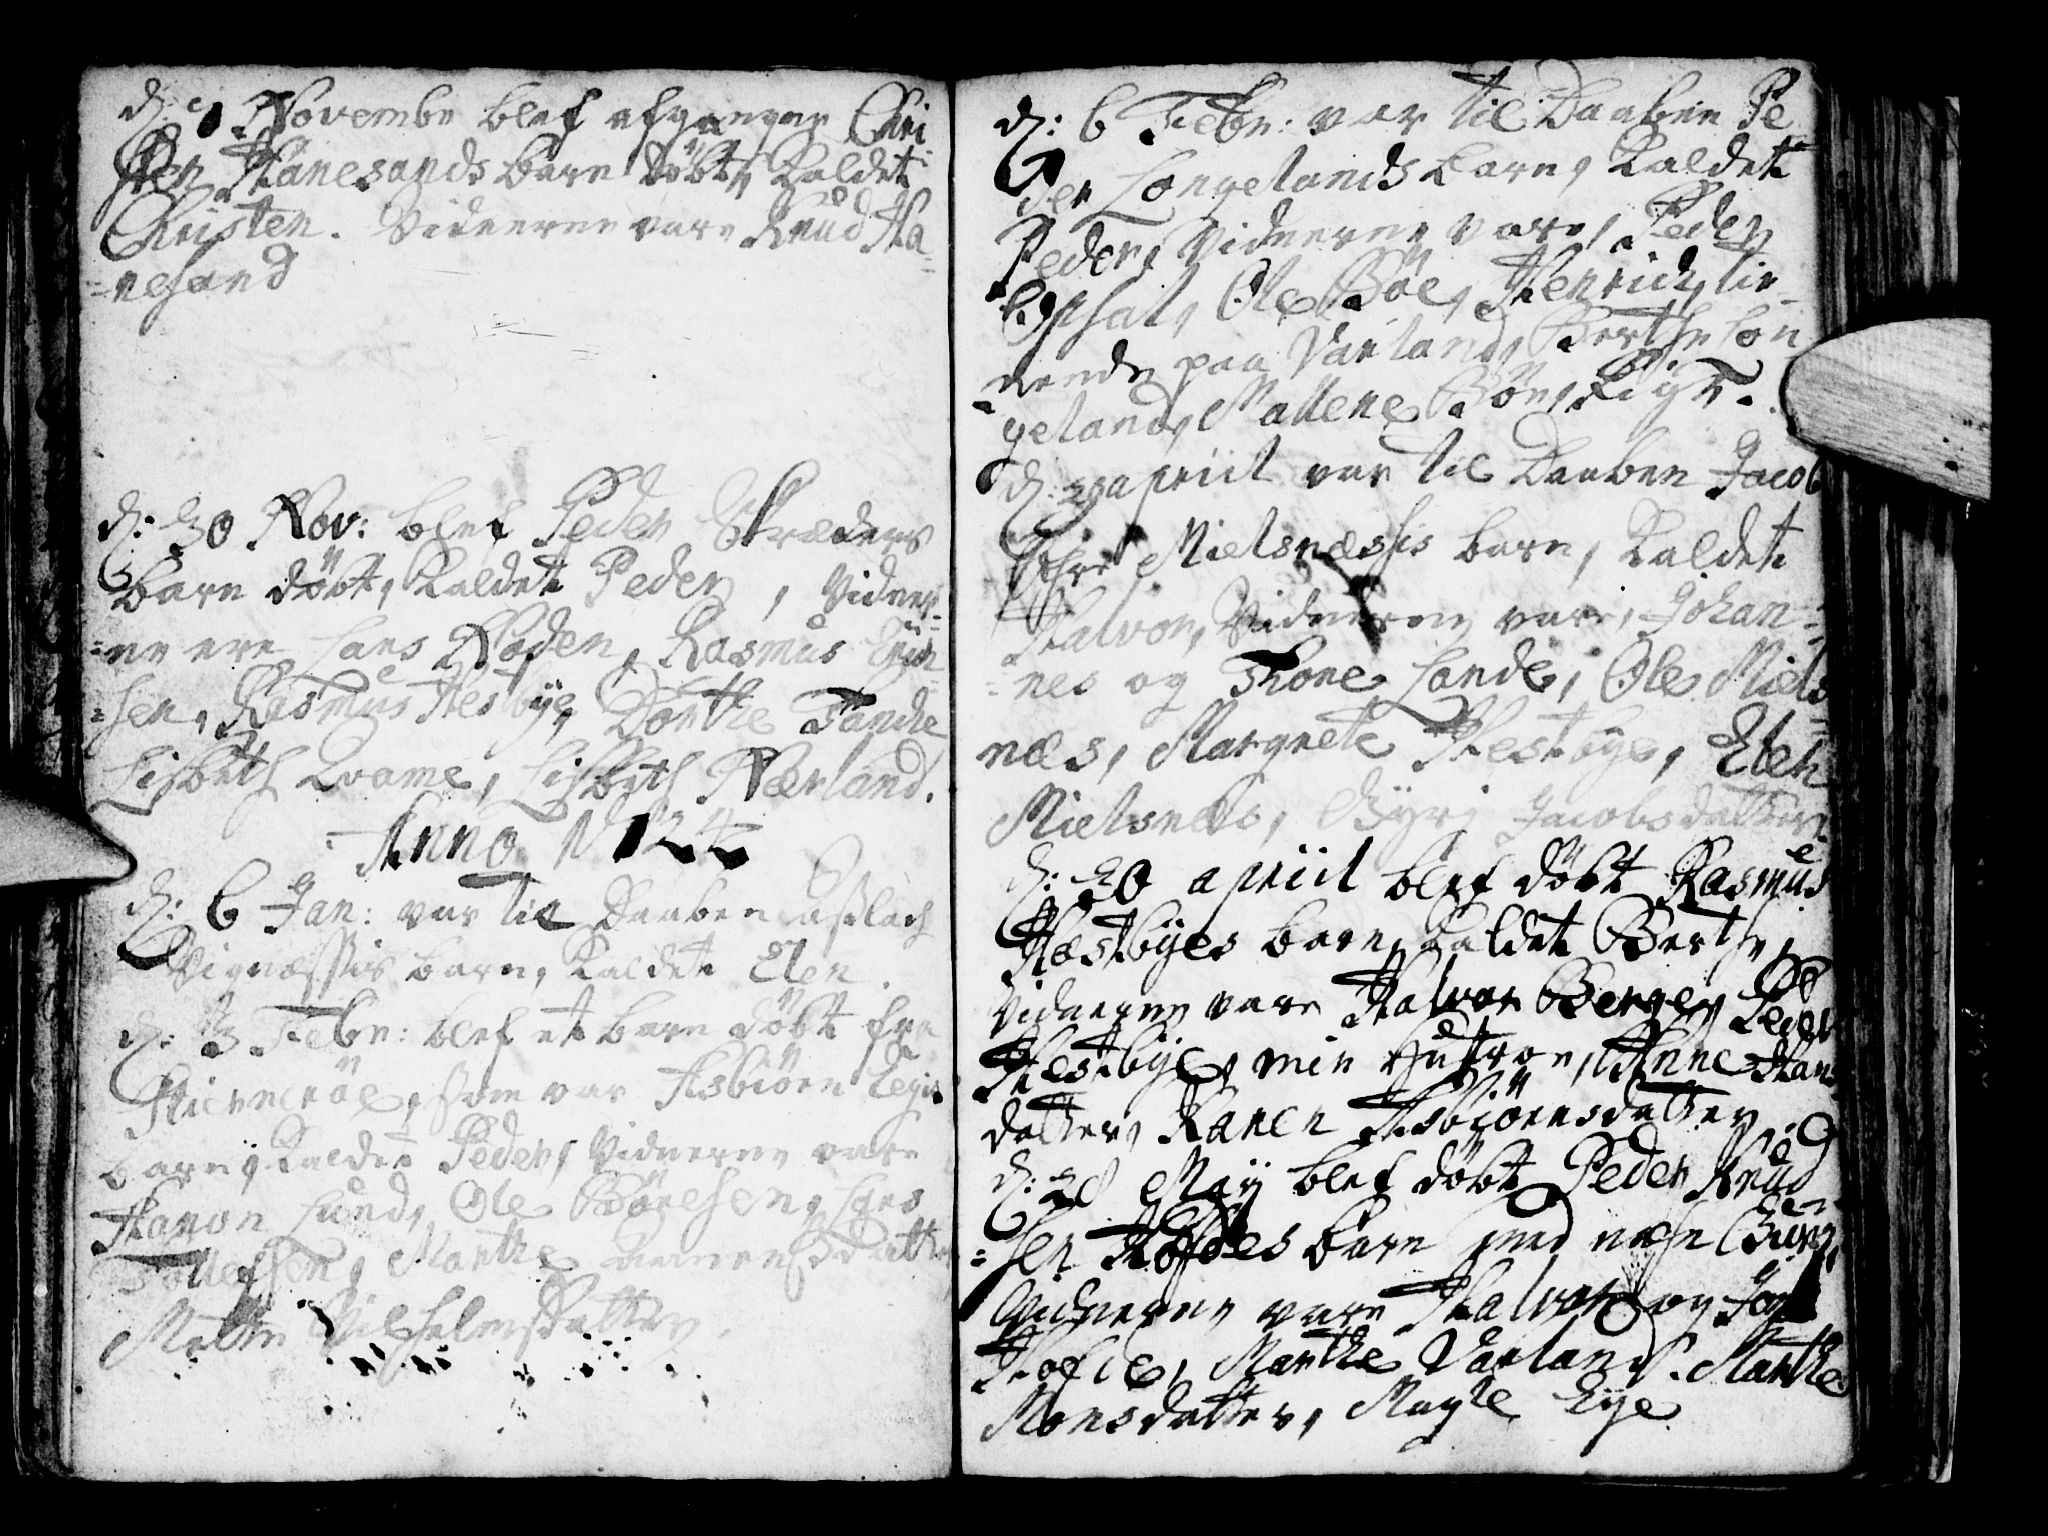 d: 1 Novembr blef afgangne Chri-
sten Hanesands barn döbt, kaldet
Christen. Vidnerne vare Knud Ha-
=nesand
d: 30 Nov: blef Peder Skræders
barn döbt, kaldet Peder, Vidner-
=ne ere Lars Hoden, Rasmus
=sen, Rasmus Hestbye, Dorthe Tandie
Lisbeth Qvame, Lisbeth Nærland.
Anno 1724
d: 6 Jan: var til Daaben Aslach
Vignæssis barn, kaldet Elen.
d: 3 Febr: blef et barn döbt fra
som var Asbiörn
barn, kaldet Peder, Vidnerne vare
Hanon Lund, Ole Böresen, Lars
Tollefsen, Marthe datter
Malene Vilhelmsdatter.
d: 6 Febr: var til Daaben Pe-
der Longelands barn, kaldet
Peder, Vidnerne vare, Peder
Ole Böe, Henrich tie-
nende paa Varland, Berthe Lon
geland, Mallene Böe,
d: apriil var til Daaben Jacob
Mielsnæssis barn, kaldet
Halvor, Vidnerne vare, Johan-
=nes og Thone Lande, Ole Miels
næs, Margrete Hestbye, Elen
Mielsnæs, Gyri Jacobsdatter
d: 30 apriil blef döbt Rasmus
Hæstbyes barn, kaldet Berthe,
Vidnerne vare Halvor Berge, Peder
Hestbye, min Hustroe, Anne Hans
datter, Karen Asbiörnsdatter.
d: 28 Maij blef döbt Peder Knud
=sen Hofdes barn med nafn
Vidnerne vare Halvor og Jon
Hofde, Marthe Varland. Marthe
Monsdatter, Magle Eye